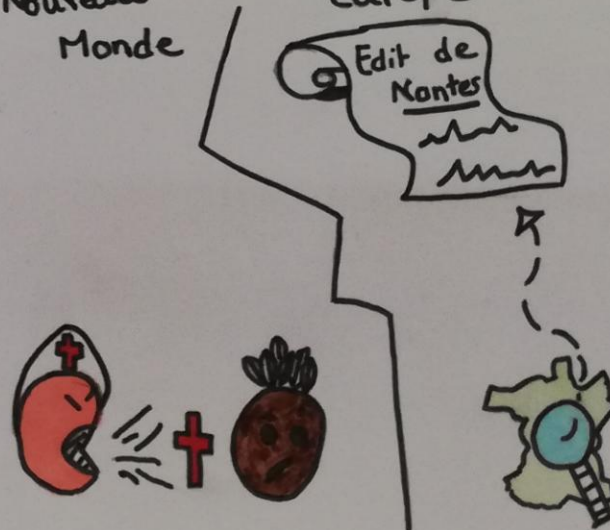 Monde
Edit de
Nantes